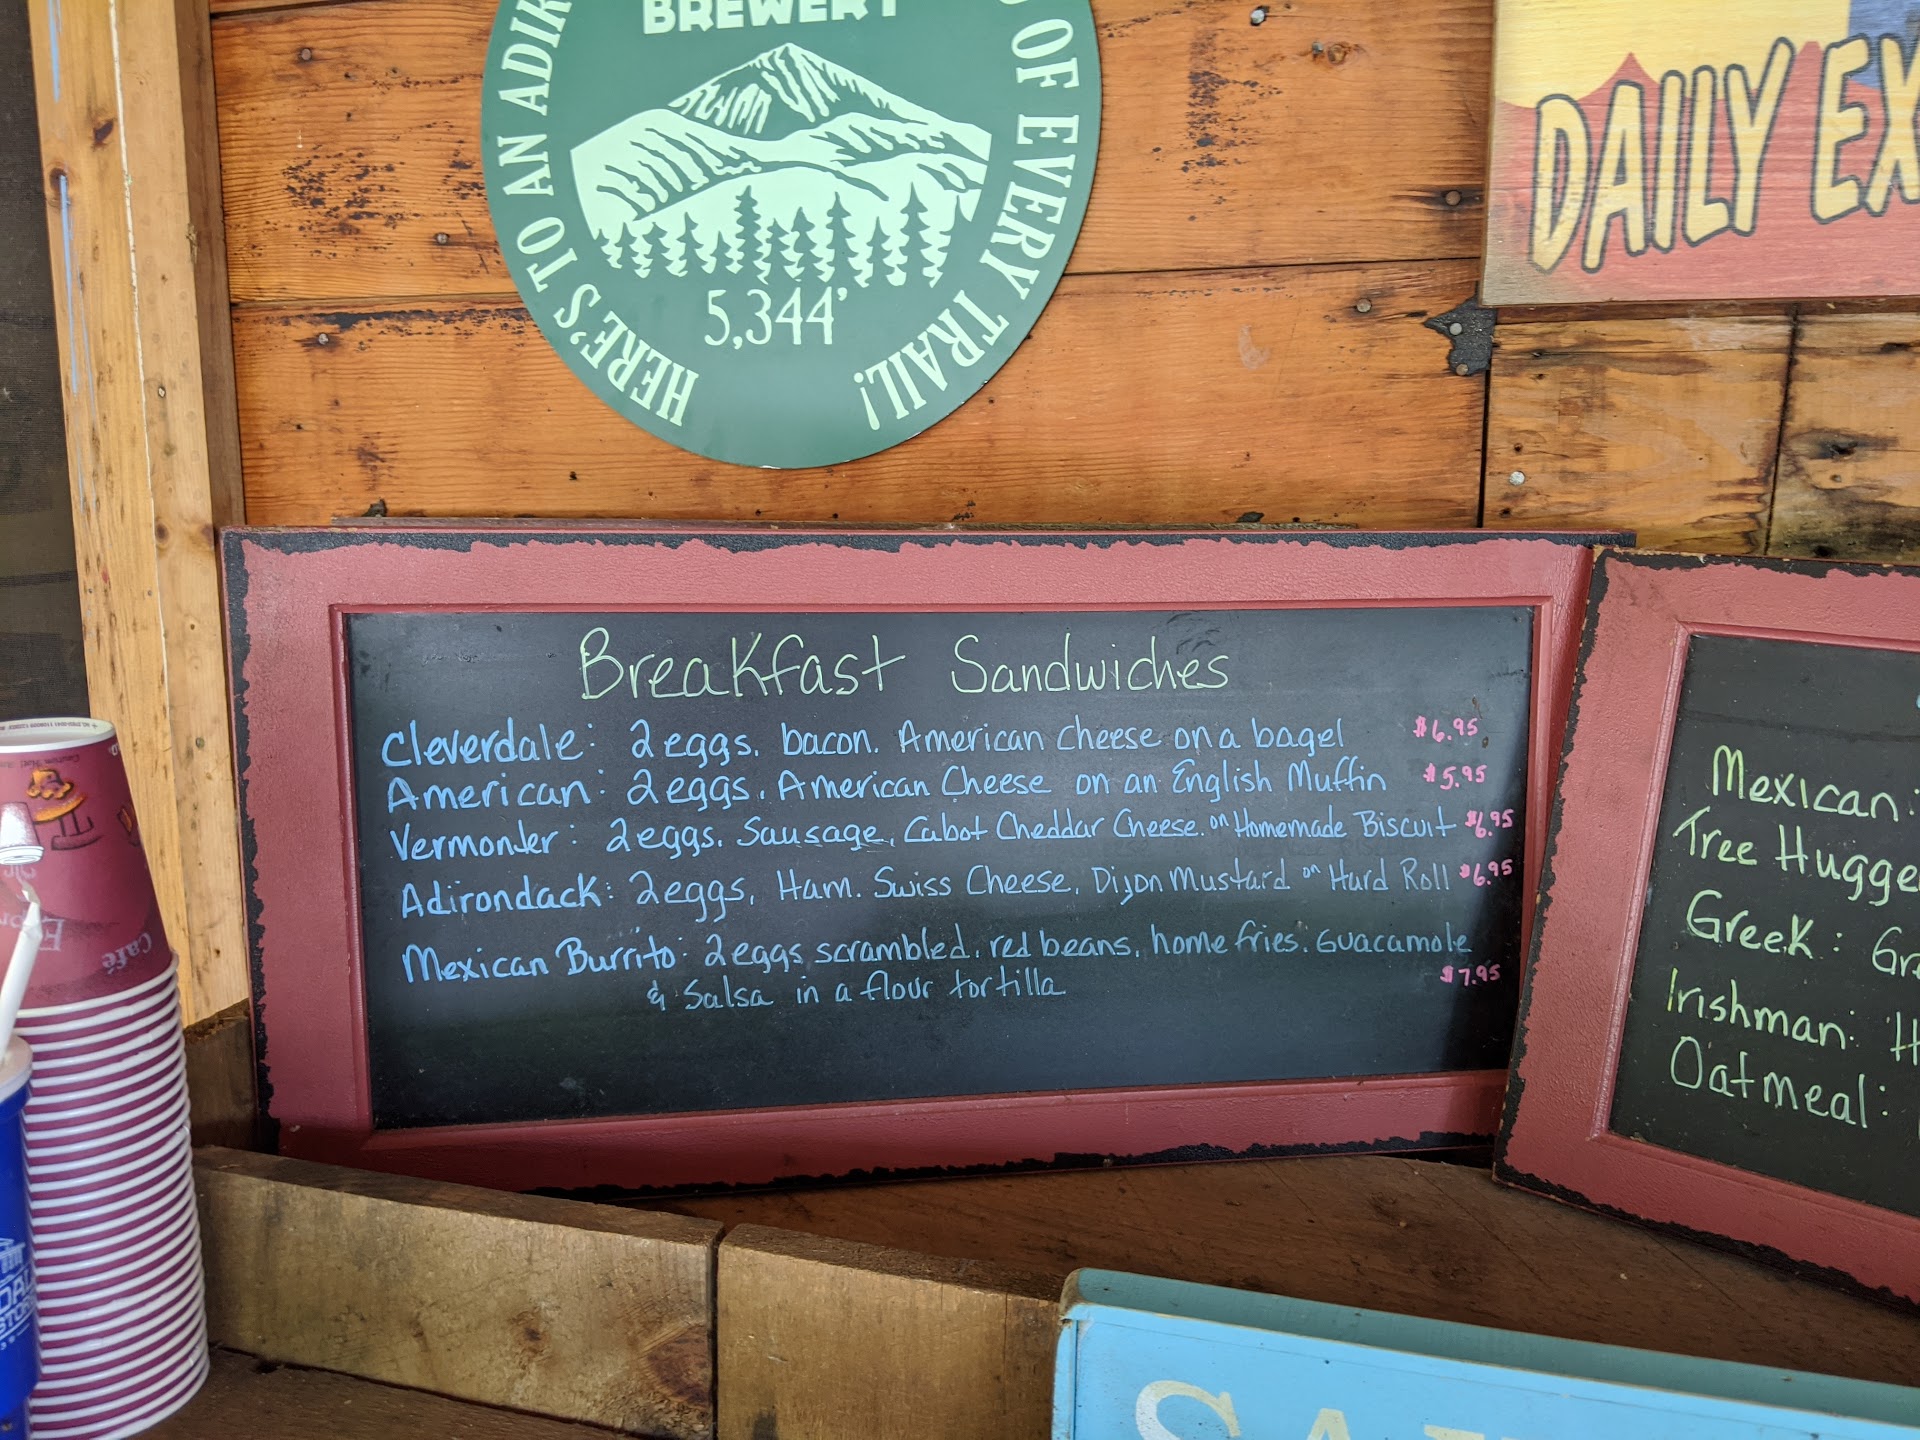 BREWERY
HERE'S TO AN ADIR
OF EVERY TRAIL!
5,344'
DAILY EX
Breakfast Sandwiches
Cleverdale: 2 eggs, bacon, American Cheese on a bagel $6.95
American: 2 eggs, American Cheese on an English Muffin $5.95
Vermonter: 2 eggs, Sausage, Cabot Cheddar Cheese on Homemade Biscuit $6.95
Adirondack: 2 eggs, Ham, Swiss Cheese, Dijon Mustard on Hard Roll $6.95
Mexican Burrito: 2 eggs scrambled, red beans, home fries, Guacamole
& Salsa in a flour tortilla $7.95
Mexican:
Tree Hugge
Greek: Gre
Irishman: H
Oatmeal:
Café